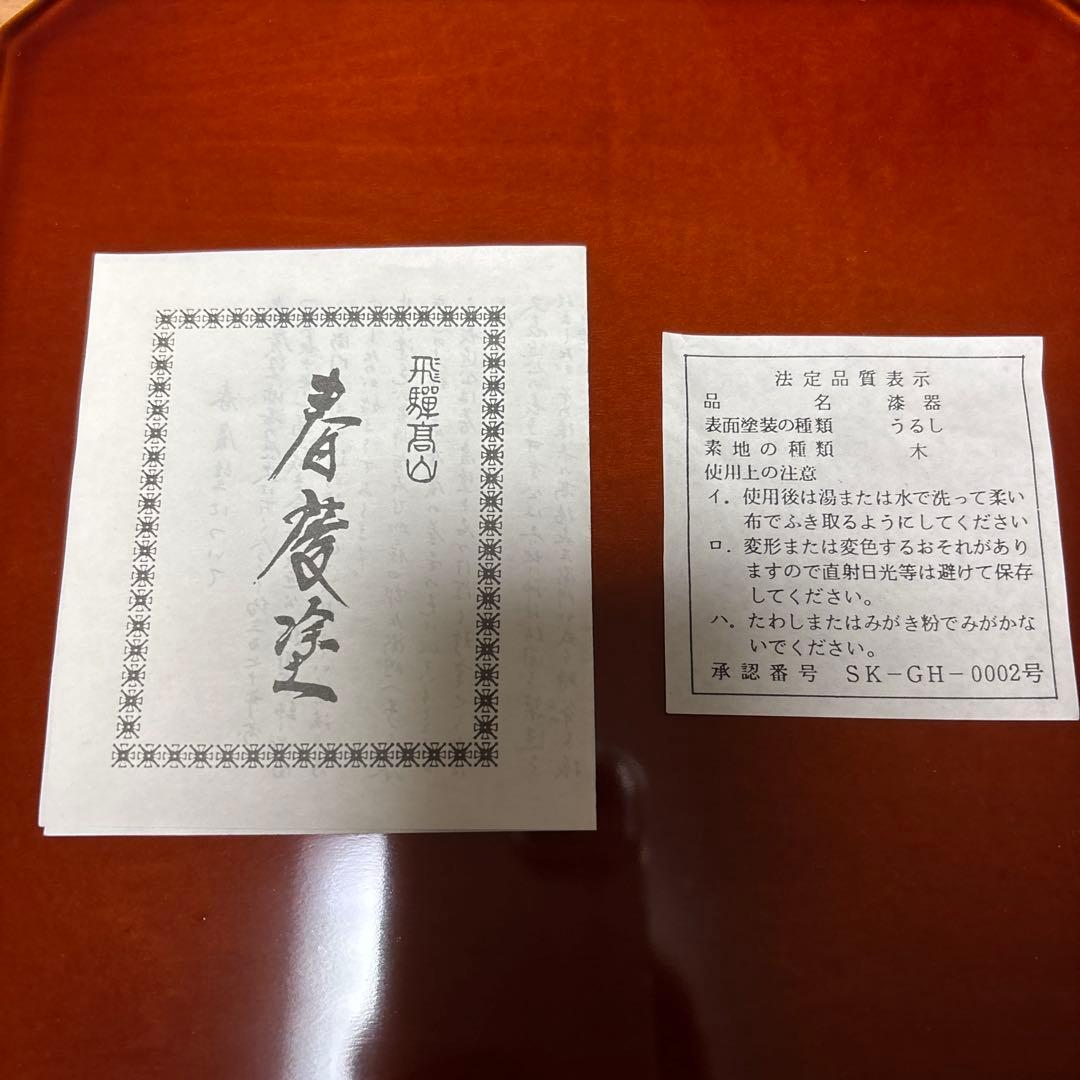 飛驒高山
春慶塗
法定品質表示
品名 漆器
表面塗装の種類 うるし
素地の種類 木
使用上の注意
イ．使用後は湯または水で洗って柔い
布でふき取るようにしてください
ロ．変形または変色するおそれがあり
ますので直射日光等は避けて保存
してください。
ハ．たわしまたはみがき粉でみがかな
いでください。
承認番号 SK－GH－0002号